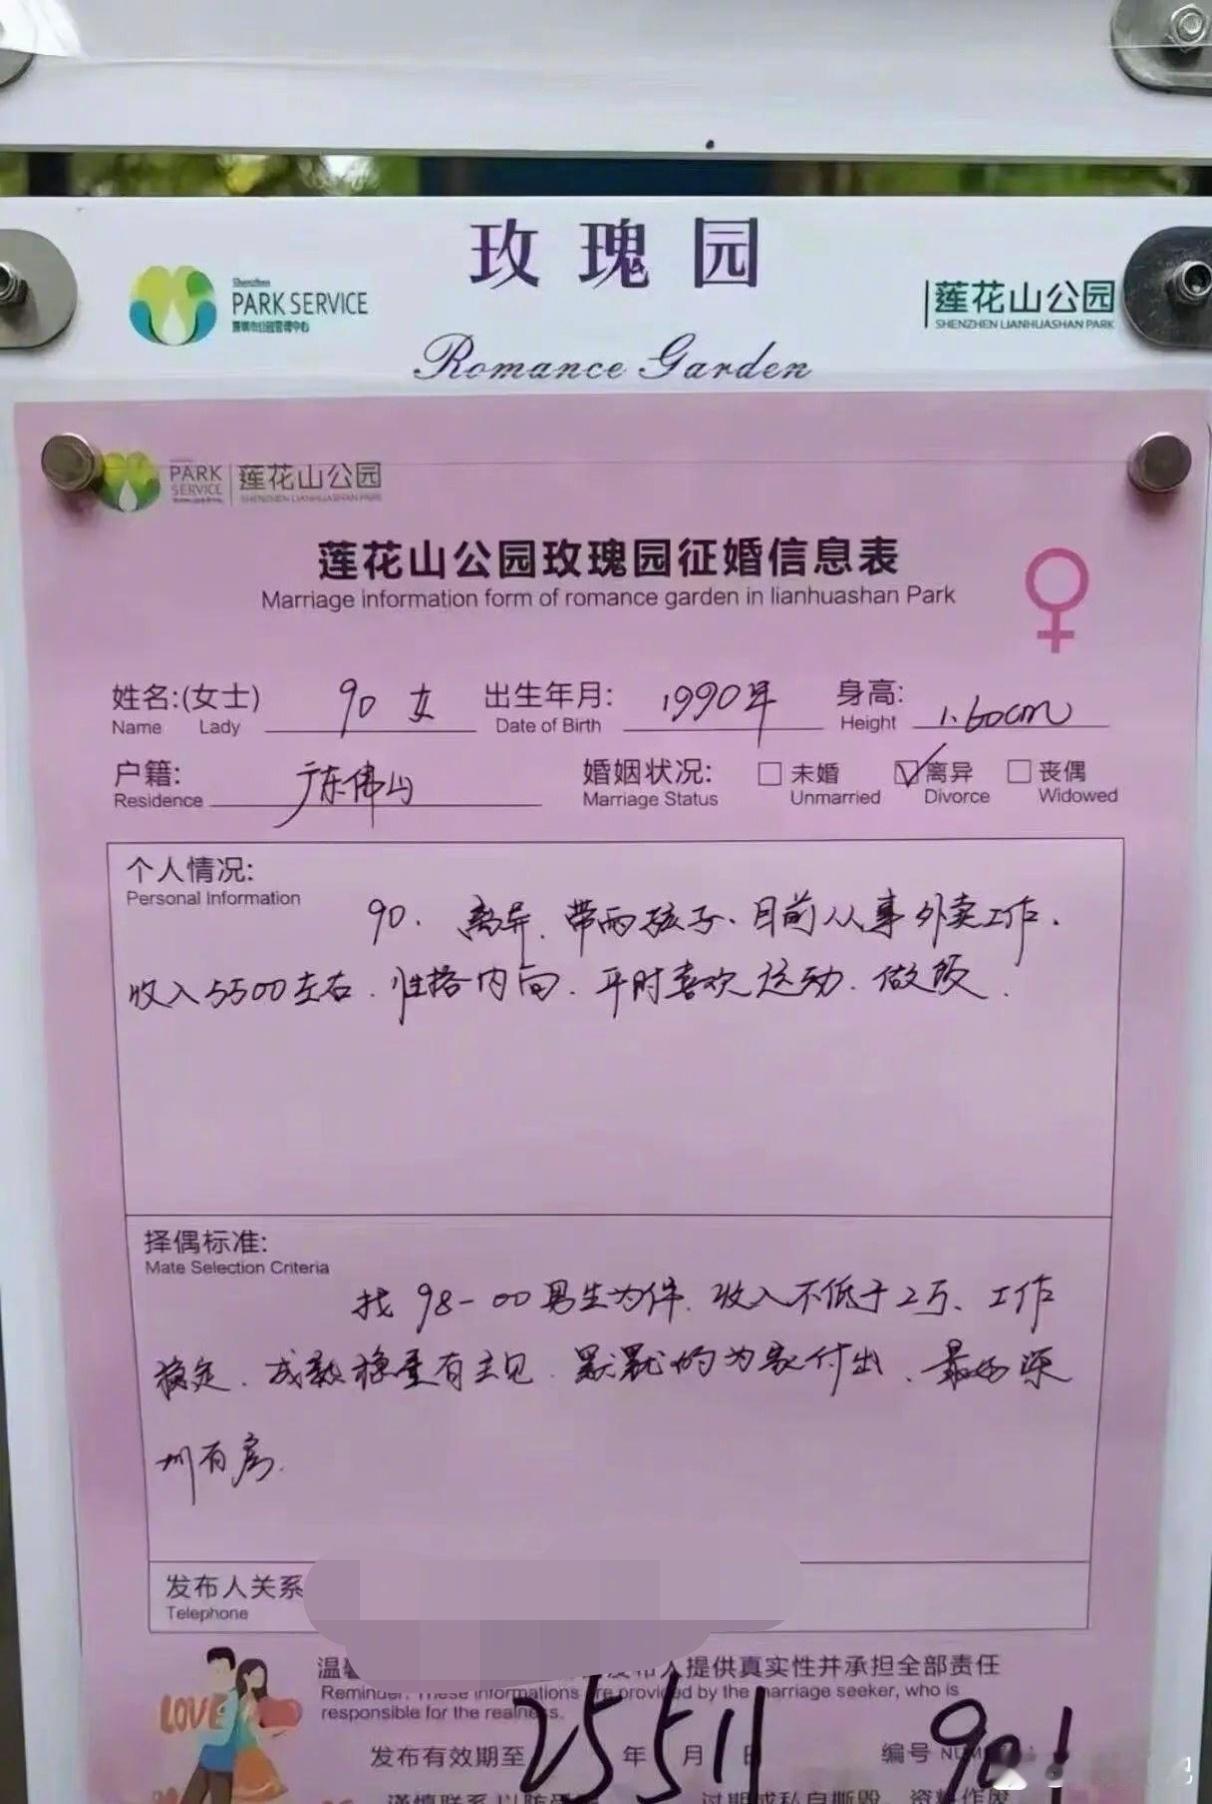 玫瑰园
Shenzhen
PARK SERVICE
深圳市公园管理中心
莲花山公园
SHENZHEN LIANHUASHAN PARK
Romance Garden
PARK SERVICE
莲花山公园
SHENZHEN LIANHUASHAN PARK
莲花山公园玫瑰园征婚信息表
Marriage information form of romance garden in lianhuashan Park
姓名:(女士) 90 女 出生年月: 1990年 身高: 1.60cm
Name Lady Date of Birth Height
户籍: 广东佛山 婚姻状况: 未婚 离异 丧偶
Residence Marriage Status Unmarried Divorce Widowed
个人情况:
Personal Information
90. 离异. 带两孩子. 目前从事外卖工作.
收入5500左右. 性格内向. 平时喜欢运动. 做饭.
择偶标准:
Mate Selection Criteria
找98-00男生为伴. 收入不低于2万、工作
稳定. 成熟稳重有主见. 默默的为家付出、最好深
圳有房.
发布人关系
Telephone
温 发布人提供真实性并承担全部责任
Reminder: These informations are provided by the marriage seeker, who is
responsible for the realness.
LOVE
发布有效期至 25 年 5 月 11 日 编号 901
谨慎联系 以防受 过期或私自撕毁、资料作废